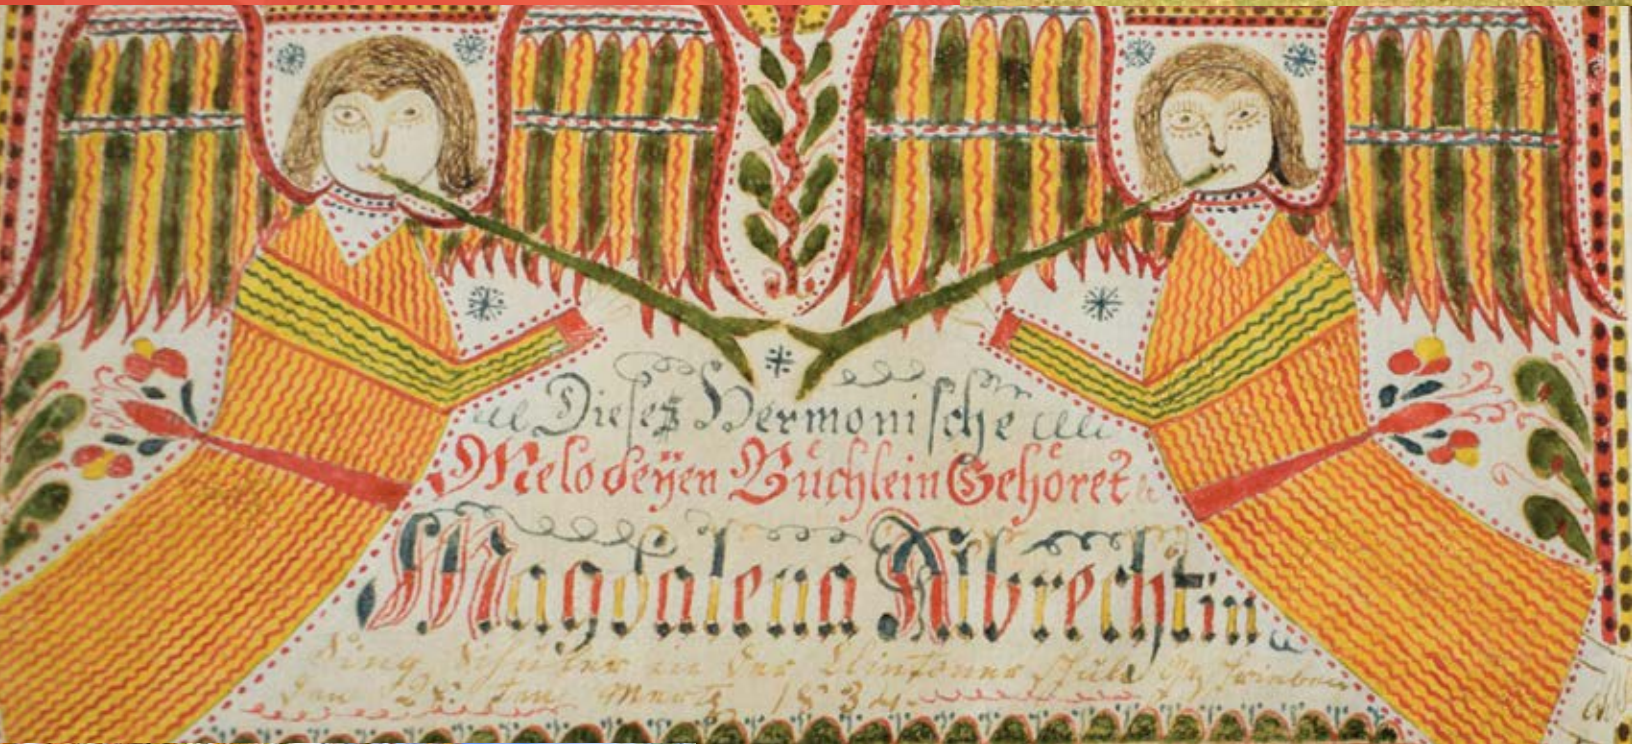 Dieses Hermonische
Melodeÿen Büchlein Gehöret
Magdalena Albrechtin
Sing Schüler in der Schule
den 28 ten Mertz 1834.